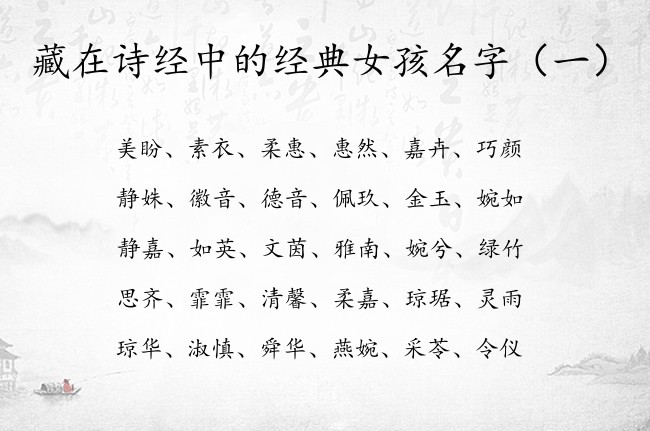 藏在诗经中的经典女孩名字（一）
美盼、素衣、柔惠、惠然、嘉卉、巧颜
静姝、徽音、德音、佩玖、金玉、婉如
静嘉、如英、文茵、雅南、婉兮、绿竹
思齐、霏霏、清馨、柔嘉、琼琚、灵雨
琼华、淑慎、舜华、燕婉、采苓、令仪